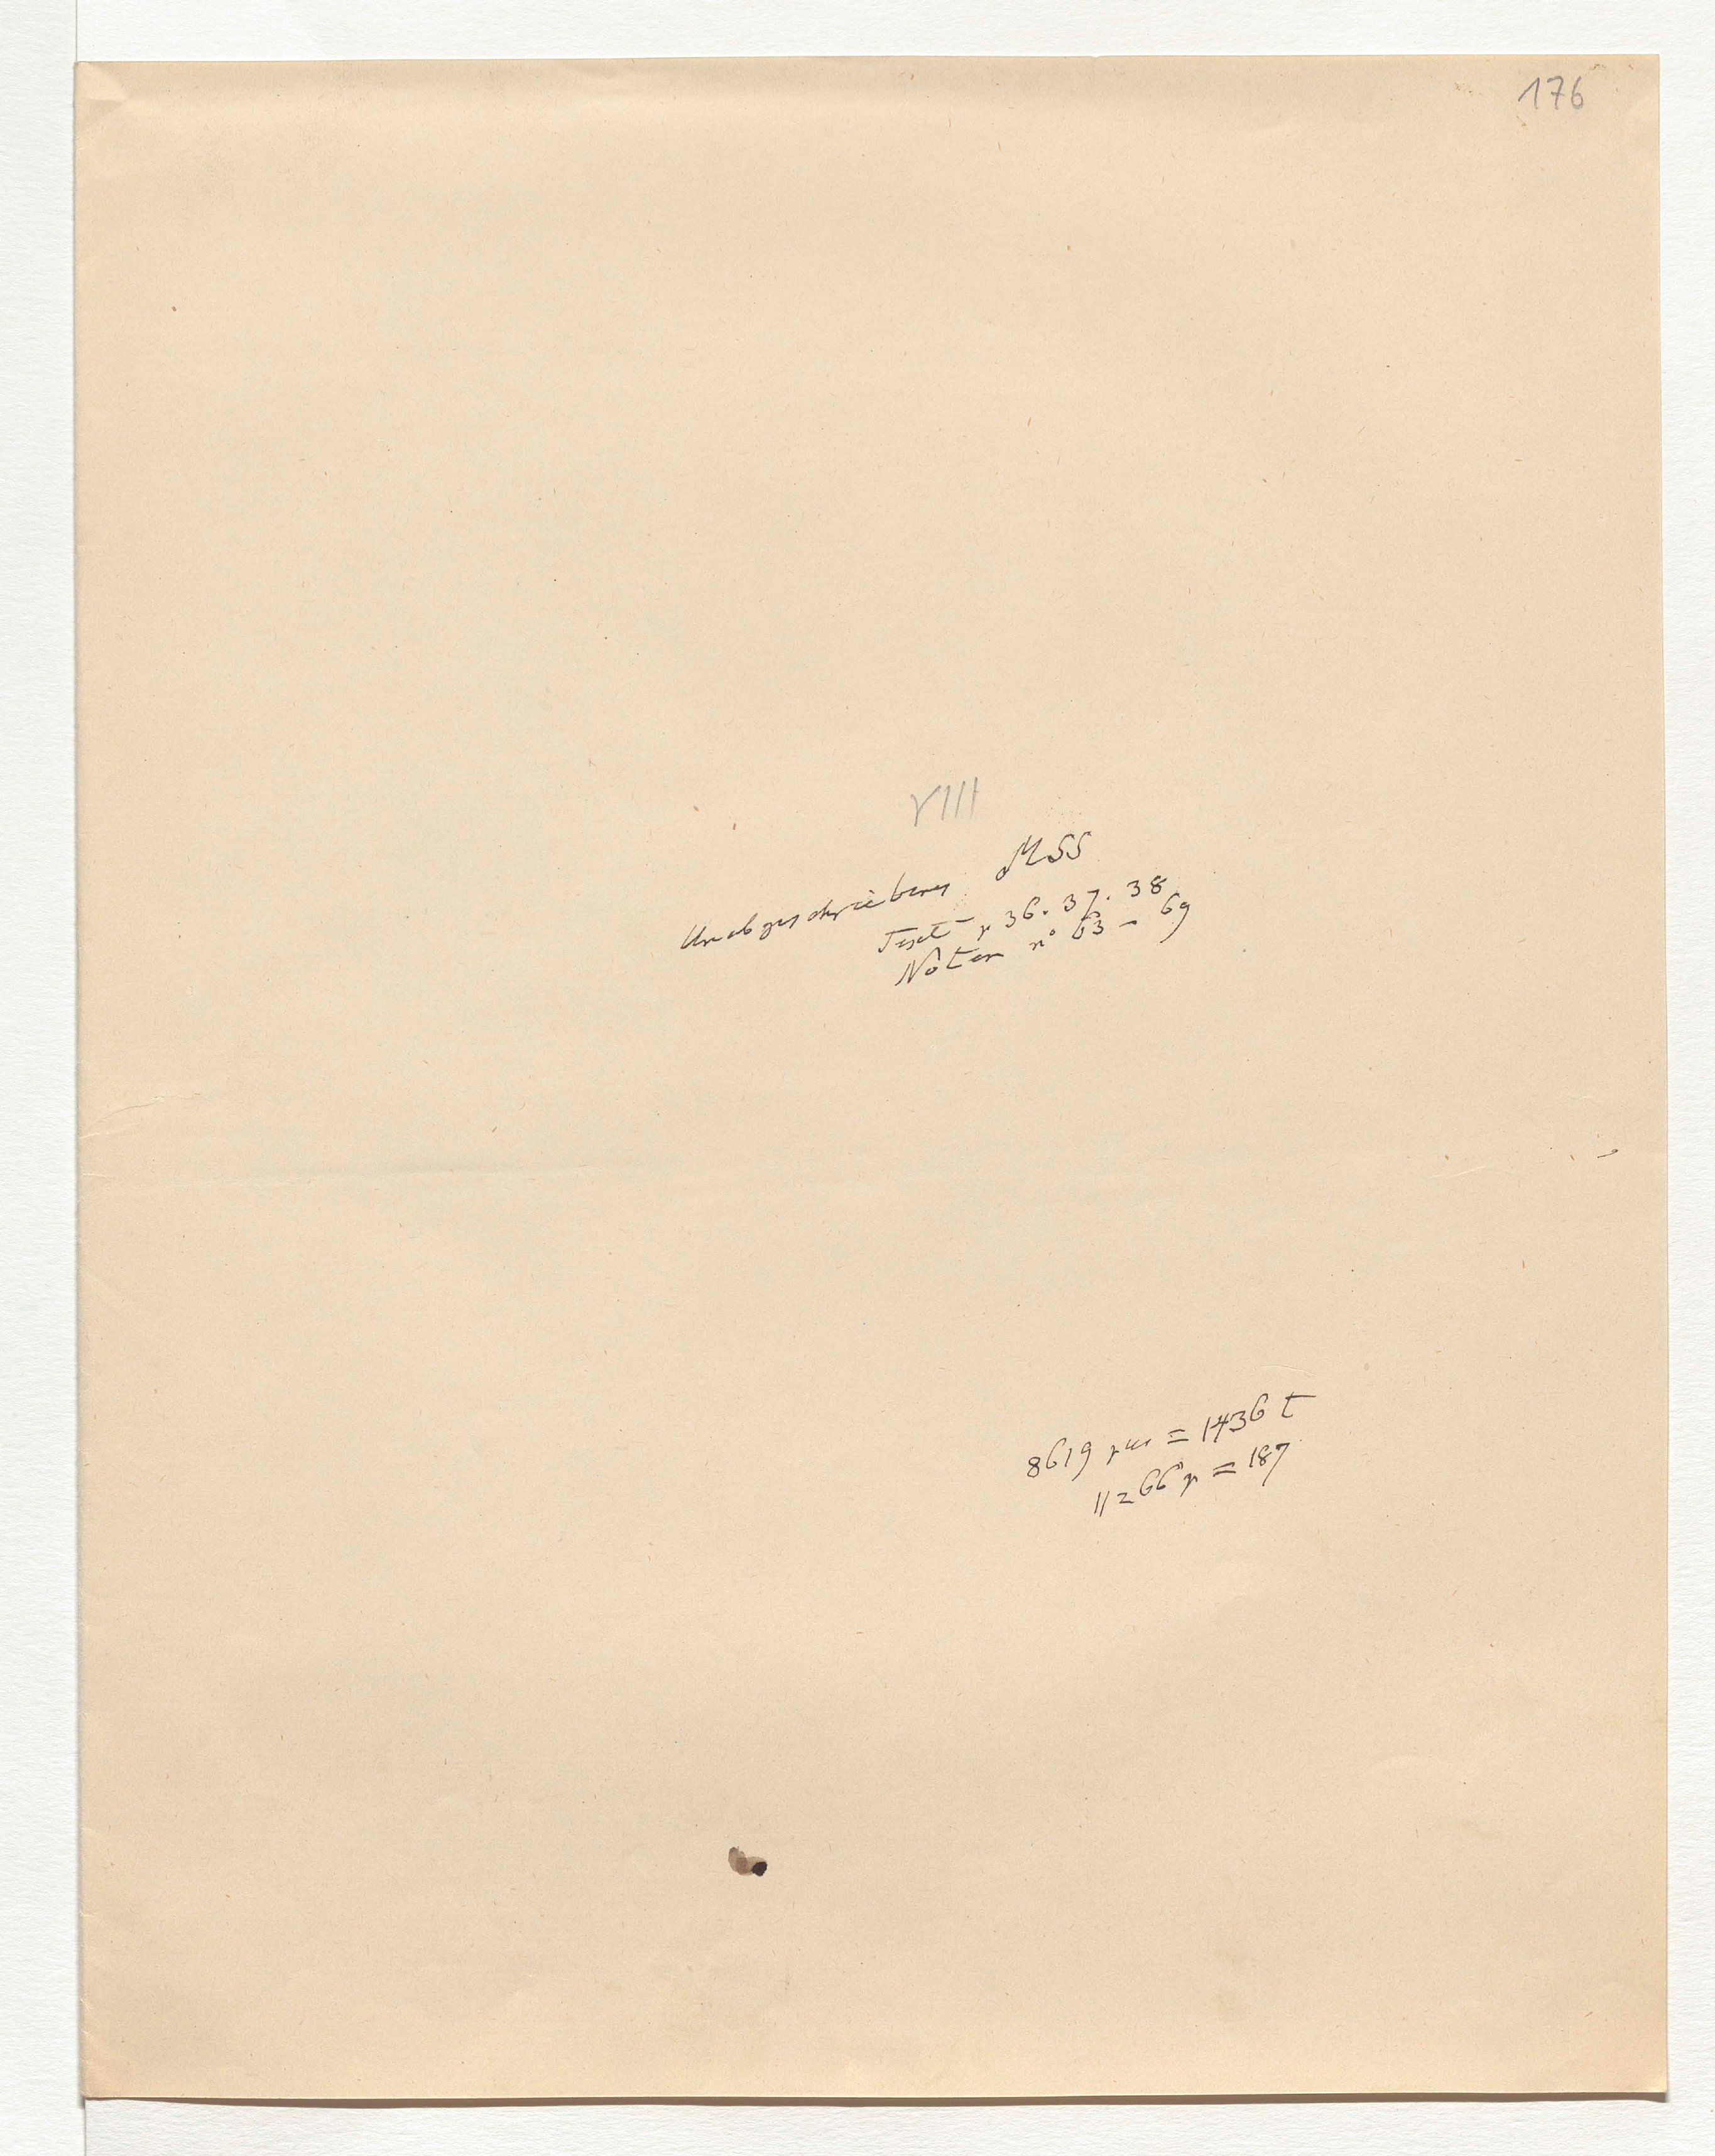 176
VIII
Unabgeschriebenes MSS
Text p 36. 37. 38
Noten n° 63 - 69
8619 = 1436 t
11266 p = 187